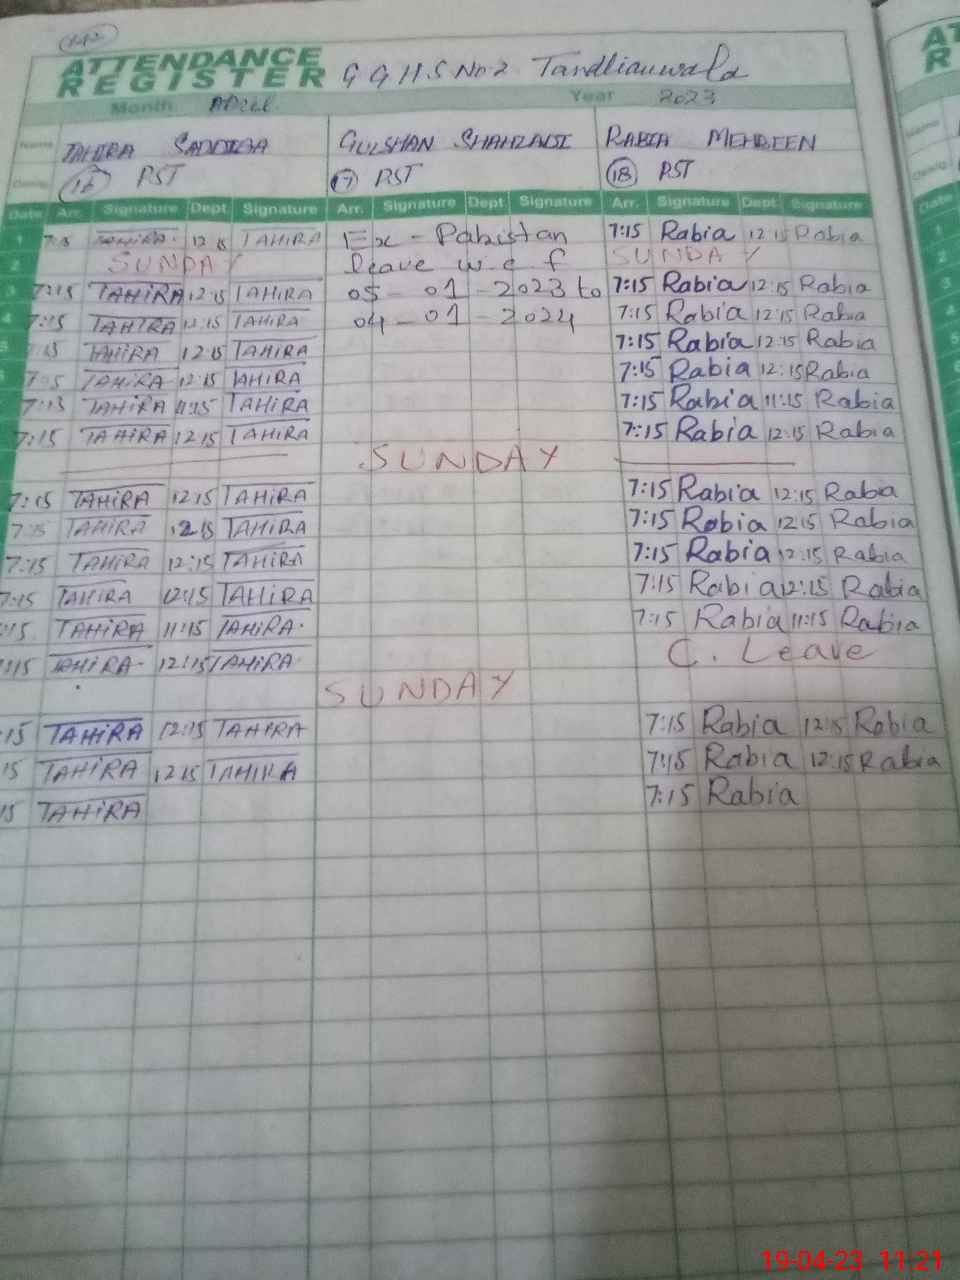 ATTENDANCE
REGISTER G G H S No 2 Tandlianwala
Month April Year 2023
Name TAHIRA SADDIQA GULSHAN SHAHZADI RABIA MEHREEN
Desig 16 PST 17 PST 18 PST
Date Arr. Signature Dept Signature Arr. Signature Dept Signature Arr. Signature Dept. Signature
1 7:15 TAHIRA 12 15 TAHIRA Ex - Pakistan 7:15 Rabia 12:15 Rabia
2 SUNDAY leave w.e.f SUNDAY
3 7:15 TAHIRA 12:15 TAHIRA 05-01-2023 to 7:15 Rabia 12:15 Rabia
4 7:15 TAHIRA 12:15 TAHIRA 04-01-2024 7:15 Rabia 12:15 Rabia
5 7:15 TAHIRA 12:15 TAHIRA 7:15 Rabia 12:15 Rabia
6 7:15 TAHIRA 12:15 TAHIRA 7:15 Rabia 12:15 Rabia
7:15 TAHIRA 11:15 TAHIRA 7:15 Rabia 11:15 Rabia
7:15 TAHIRA 12 15 TAHIRA 7:15 Rabia 12:15 Rabia
SUNDAY
7:15 TAHIRA 12:15 TAHIRA 7:15 Rabia 12:15 Rabia
7:15 TAHIRA 12:15 TAHIRA 7:15 Rabia 12:15 Rabia
7:15 TAHIRA 12:15 TAHIRA 7:15 Rabia 12:15 Rabia
7:15 TAHIRA 12:15 TAHIRA 7:15 Rabia 12:15 Rabia
:15 TAHIRA 11:15 TAHIRA 7:15 Rabia 11:15 Rabia
:15 TAHIRA 12:15 TAHIRA C. Leave
SUNDAY
:15 TAHIRA 12:15 TAHIRA 7:15 Rabia 12:15 Rabia
15 TAHIRA 12 15 TAHIRA 7:15 Rabia 12:15 Rabia
15 TAHIRA 7:15 Rabia
19-04-23 11:21